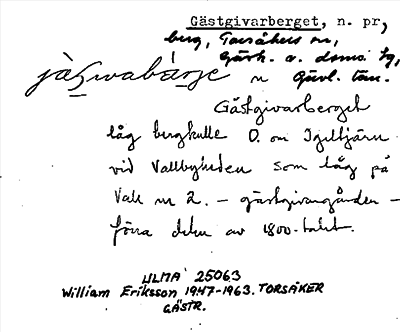 Gästgivarberget, n. pr,
berg, Torsåkers sn,
Gästr. o. doms. hg,
Gävl. län.
Gästgivarberget
låg bergkulle O. om Igeltjärn
vid Vallbyheden som låg på
Vall nr 2. – gästgivargården –
förra delen av 1800-talet.
ULMA 25063
William Eriksson 1947-1963. TORSÅKER
GÄSTR.